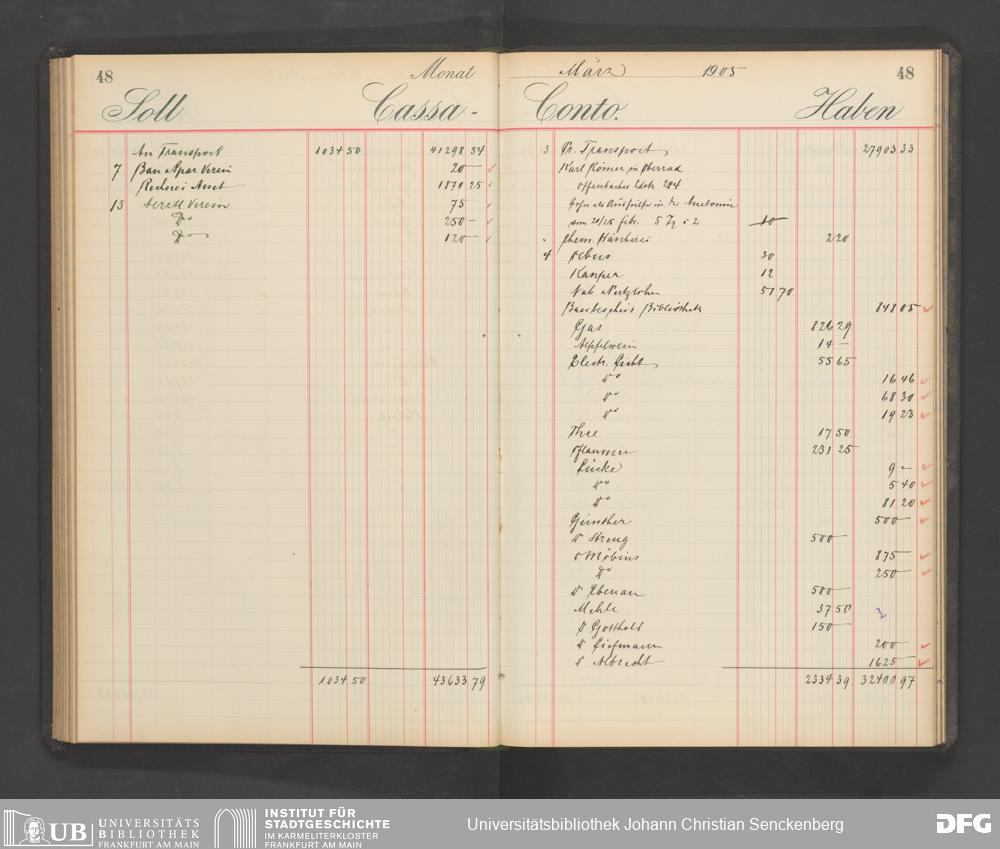 48 Monat
Soll Cassa-
An Transport 1034 50 41298 54
7 Bau & Spar Verein 20 —
Rechnei Amt 1870 25
13 Aerztl Verein 75 —
Do 250 —
Do 120 —
1034 50 43633 79
März 1905 48
Conto. Haben
3 Pr. Transport 27903 33
Karl Römer in Oberrad
Offenbacher Ldstr. 284
Lohn als Aushülfe in der Anatomie
vom 20/25 Febr. 5 Tg à 2 10
" Chem. Wäscherei 2 20
4 Albus 30
Kanper 12
Nab 51 70
Bibliothek 848 05
Gas 826 29
Apfelwein 14 —
Electr. Licht 55 65
do 16 46
do 68 30
do 19 23
Thee 17 50
Pflaumer 231 25
Lücke 9 —
do 5 40
do 81 20
Günther 500 —
Dr Streng 500 —
Dr Möbius 875 —
Do 250 —
Dr Ebenau 500 —
Mehle 37 50
Dr Gotthold 150 —
Dr 200 —
Dr Albrecht 1625 —
2334 39 32400 97
UB UNIVERSITÄTS
BIBLIOTHEK
FRANKFURT AM MAIN
INSTITUT FÜR
STADTGESCHICHTE
IM KARMELITERKLOSTER
FRANKFURT AM MAIN
Universitätsbibliothek Johann Christian Senckenberg
DFG